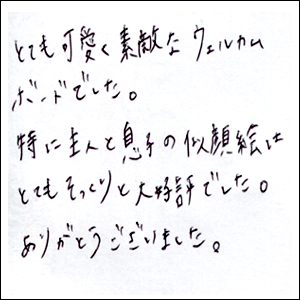 とても可愛く素敵なウェルカム
ボードでした。
特に主人と息子の似顔絵は
とてもそっくりと大好評でした。
ありがとうございました。